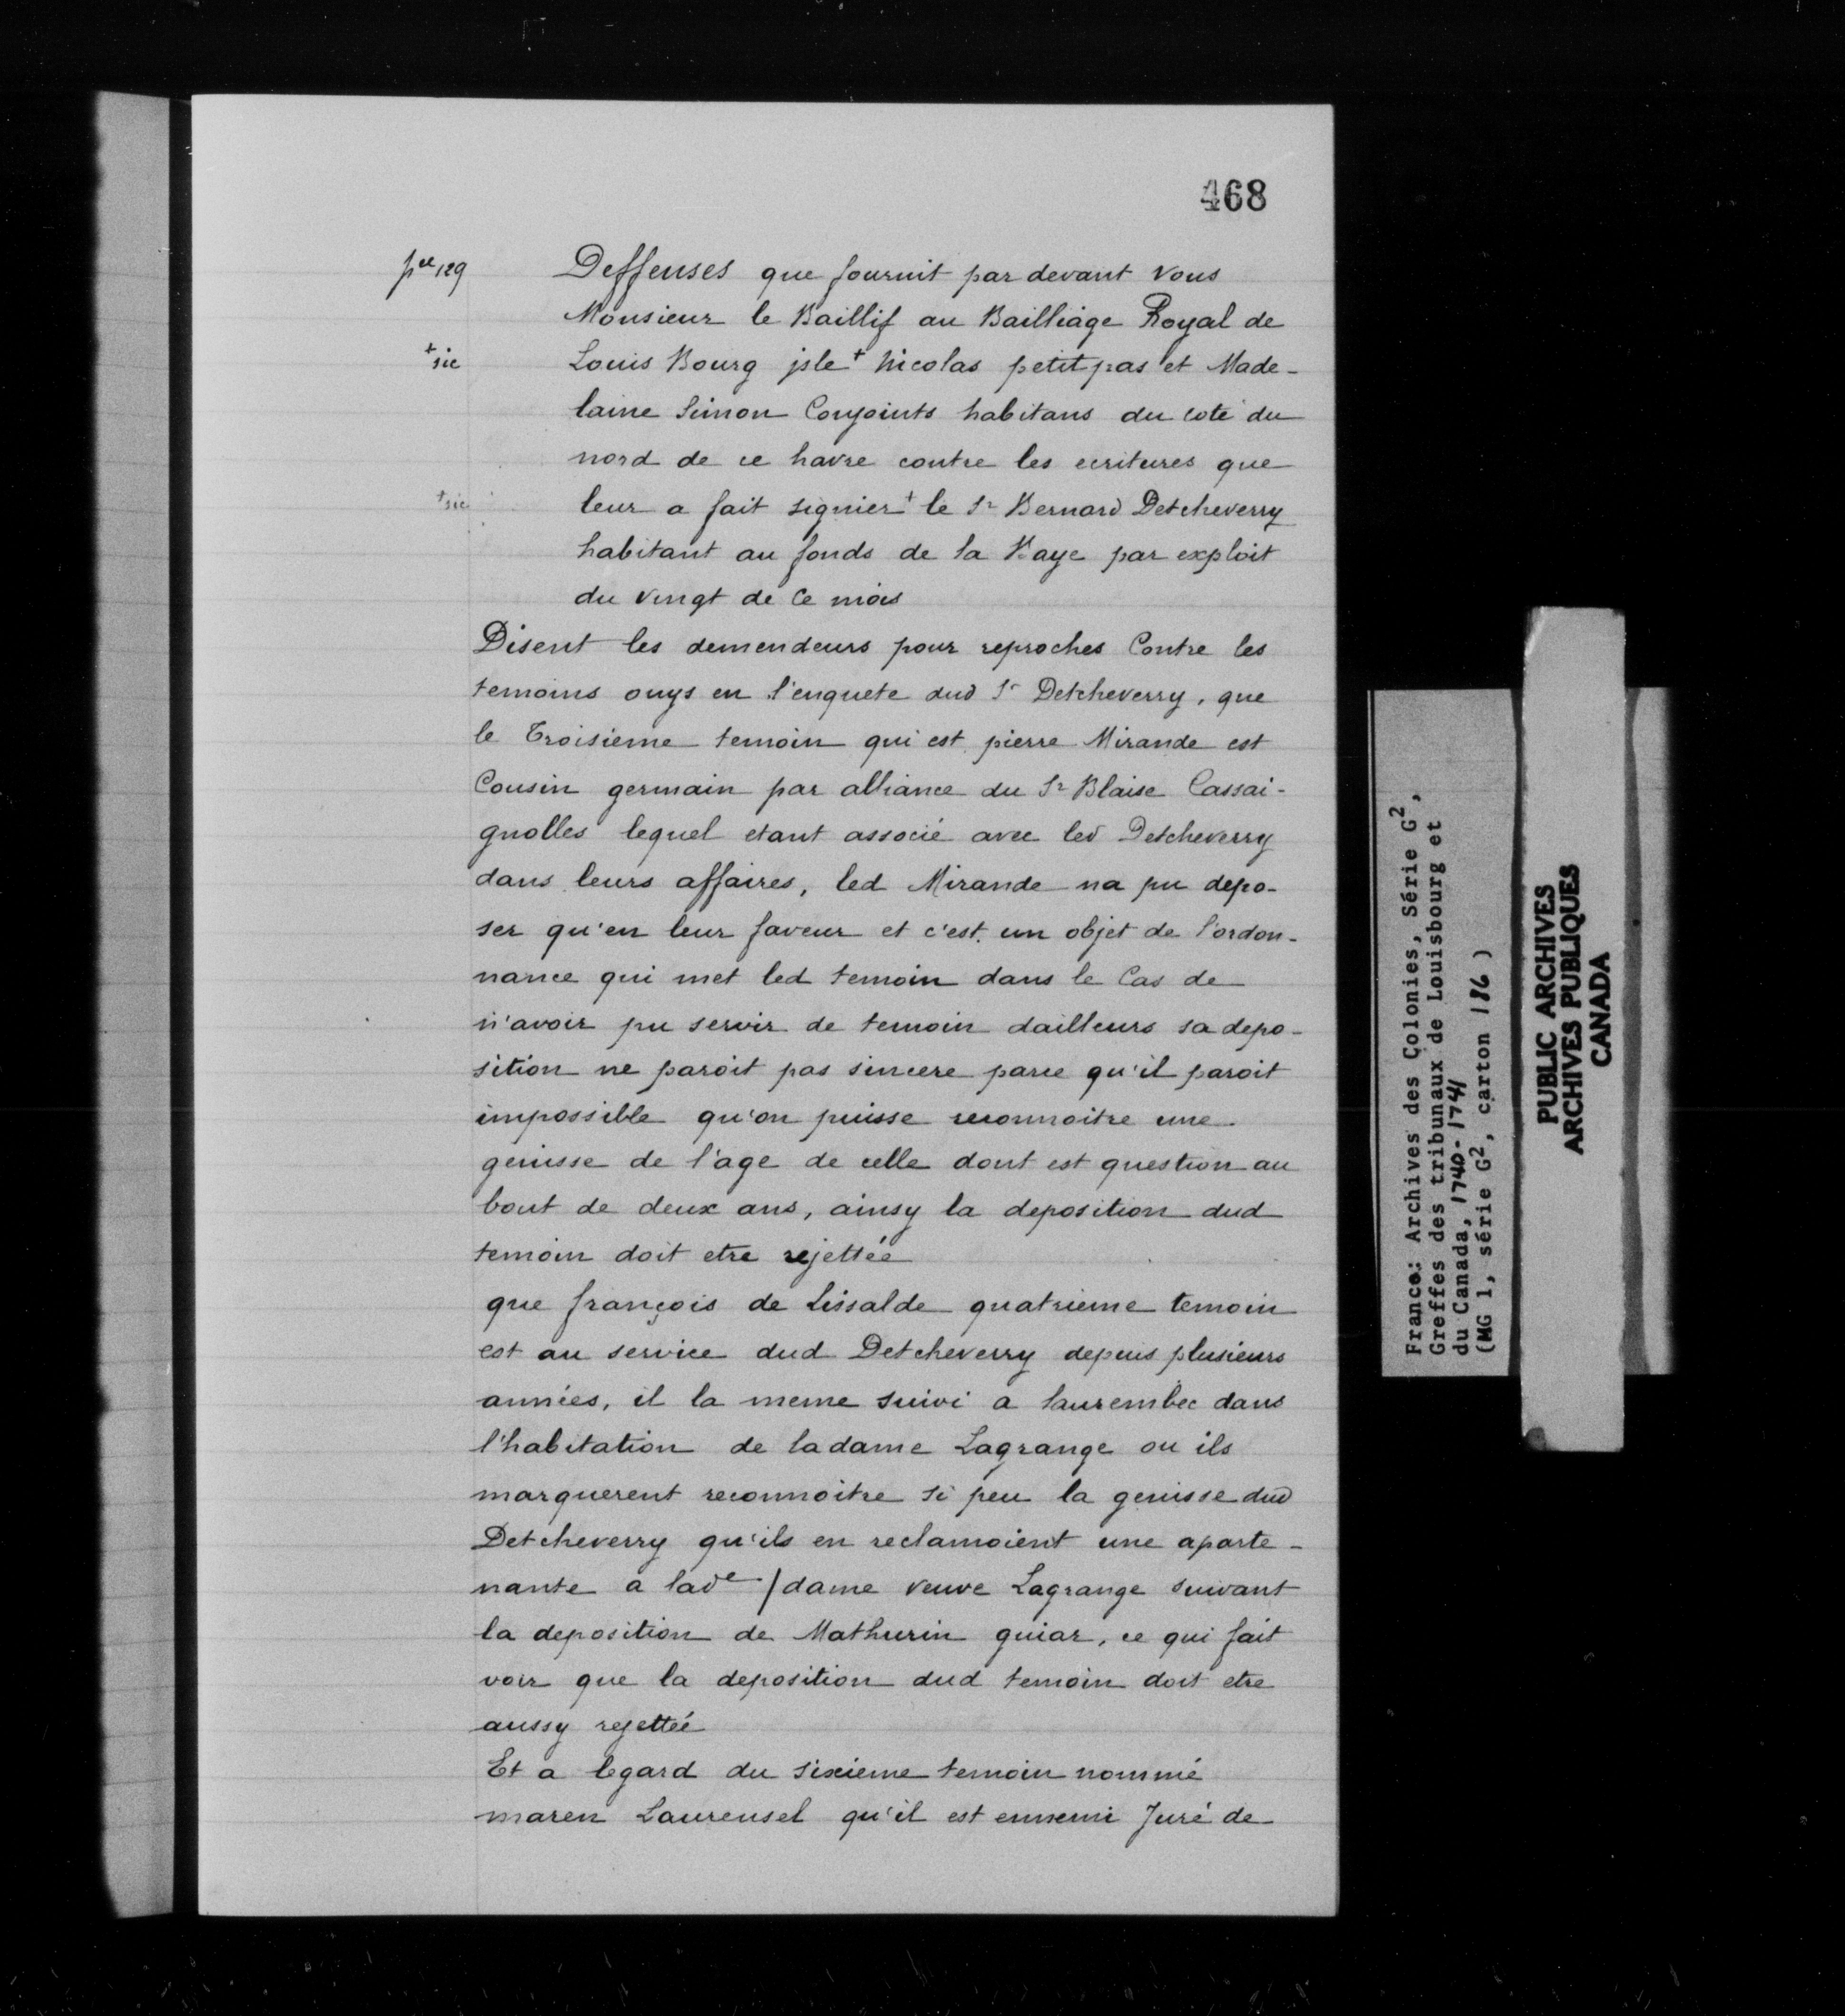 468
pce 129
Deffenses que fournit par devant vous
Monsieur le Baillif au Bailliage Royal de
+ sic
Louis Bourg jsle + Nicolas petitpas et Made-
laine Simon Conjoints habitans du coté du
nord de ce havre contre les ecritures que
+ sic
leur a fait signier + le Sr Bernard Detcheverry
habitant au fonds de la Baye par exploit
du vingt de Ce mois
Disent les demendeurs pour reproches Contre les
temoins ouys en l'enquete dud Sr Detcheverry, que
le Troisieme temoin qui est pierre Mirande est
Cousin germain par alliance du Sr Blaise Cassai-
gnolles lequel etant associé avec led Detcheverry
dans leurs affaires, led Mirande na pu depo-
ser qu'en leur faveur et c'est un objet de l'ordon-
nance qui met led temoin dans le Cas de
n'avoir pu servir de temoin dailleurs sa depo-
sition ne paroit pas sincere parce qu'il paroit
impossible qu'on puisse reconnoitre une
genisse de l'age de celle dont est question au
bout de deux ans, ainsy la deposition dud
temoin doit etre rejettée
que françois de Lissalde quatrieme temoin
est au service dud Detcheverry depuis plusieurs
années, il la meme suivi a laurembec dans
l'habitation de ladame Lagrange ou ils
marquerent reconnoitre si peu la genisse dud
Detcheverry qu'ils en reclamoient une aparte-
nante a lade / dame veuve Lagrange suivant
la deposition de Mathurin guiar, ce qui fait
voir que la deposition dud temoin doit etre
aussy rejettée
Et a legard du sixieme temoin nommé
maren Laurensel qu'il est ennemi Juré de
France: Archives des Colonies, Série G2,
Greffes des tribunaux de Louisbourg et
du Canada, 1740-1741
(MG 1, série G2, carton 186 )
PUBLIC ARCHIVES
ARCHIVES PUBLIQUES
CANADA